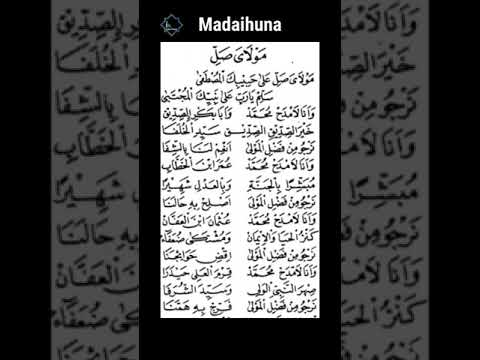 Madaihuna
مَوْلَايَ صَلِّ
مَوْلَايَ صَلِّ عَلَى حَبِيْبِكَ الْمُصْطَفَى
سَلِّمْ يَارَبِّ عَلَى نَبِيِّكَ الْمُجْتَبَى
وَاَنَا لَامْدَحْ مُحَمَّدْ وَاَبَا بَكْرِ الصِّدِّيْقِ
خَيْرَ الصِّدِّيْقِ الصِّدِّيْقِ سَيِّدِ الْخُلَفَا
نَرْجُو مِنْ فَضْلِ الْمَوْلَى اَنْعِمْ لَنَا بِالشِّفَا
وَاَنَا لَامْدَحْ مُحَمَّدْ عُمَرَ ابْنَ الْخَطَّابِ
مُبَشَّرًا بِالْجَنَّةِ وَبِالْعَدْلِ شَهِيْرًا
نَرْجُو مِنْ فَضْلِ الْمَوْلَى اَصْلِحْ بِهِ حَالَنَا
وَاَنَا لَامْدَحْ مُحَمَّدْ عُثْمَانَ ابْنَ الْعَفَّانْ
كَنْزُ الْحَيَا وَالْاِيْمَانْ وَمُشْتَكَى ضُعَفَاءْ
نَرْجُو مِنْ فَضْلِ الْمَوْلَى اِقْضِ حَوَائِجَنَا
وَاَنَا لَامْدَحْ مُحَمَّدْ قَرْمِ الْعَلِي حَيْدَرَا
صِهْرَ النَّبِيْ الْوَلِيْ وَسَيِّدَ الشُّرَفَا
نَرْجُو مِنْ فَضْلِ الْمَوْلَى فَرِّجْ بِهِ هَمَّنَا